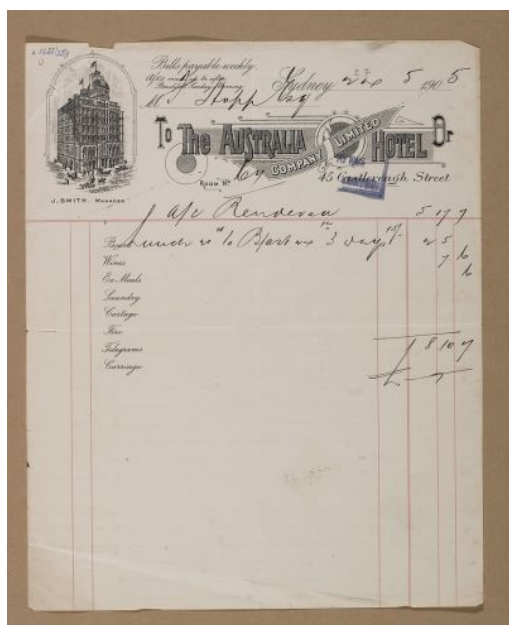 Bills payable weekly.
Sydney 5 1905
Mr J Stopp Esq
To The AUSTRALIA HOTEL Dr
COMPANY LIMITED
Room No
45 Castlereagh Street
J. SMITH. MANAGER
a/c Rendered 5 17 7
Board Lunch to B/fast 3 days 15/- 2 5
Wines 7 6
Ex. Meals 6
Laundry
Cartage
Fire
Telegrams 8 10 7
Carriage